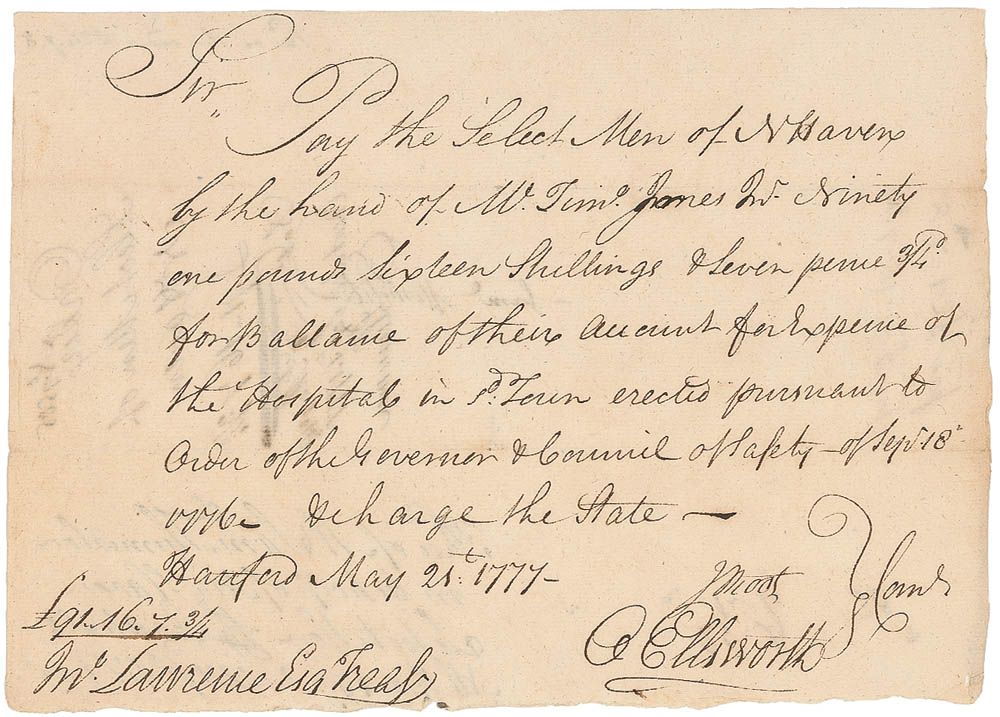 Sir,
Pay the Select Men of N Haven
by the hand of Mr. Timo. Jones Jnr. Ninety
one pounds Sixteen Shillings & Seven pence 3/4d
for Ballance of their Account for Expence of
the Hospital in sd. Town erected pursuant to
Order of the Governor & Council of Safety - of Sept. 18th
1776 & charge the State —
Hartford May 21st. 1777 -
£91..16..7. 3/4
Jno. Lawrence Esqr. Treasr
J Root
O Ellsworth
} Comtt